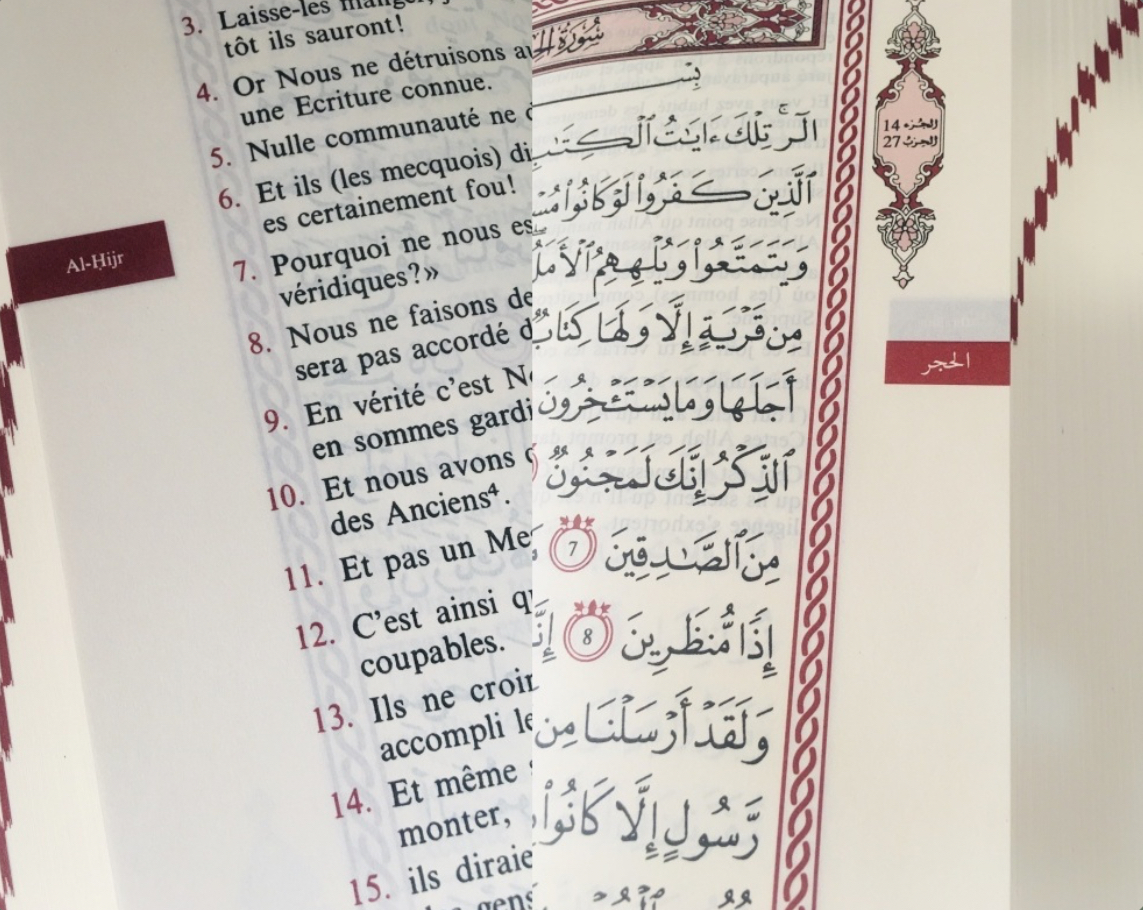 3. Laisse-les manger,
tôt ils sauront!
4. Or Nous ne détruisons
une Ecriture connue.
5. Nulle communauté ne
6. Et ils (les mecquois)
es certainement fou!
7. Pourquoi ne nous
véridiques?»
8. Nous ne faisons
sera pas accordé
9. En vérité c'est
en sommes
10. Et nous avons
des Anciens⁴.
11. Et pas un
12. C'est ainsi
coupables.
13. Ils ne
accompli
14. Et même
monter,
15. ils
Al-Ḥijr
سُورَةُ
الٓر تِلْكَ ءَايَٰتُ ٱلْكِتَٰبِ
ٱلَّذِينَ كَفَرُوا۟ لَوْ كَانُوا۟
وَيَتَمَتَّعُوا۟ وَيُلْهِهِمُ ٱلْأَمَلُ
مِن قَرْيَةٍ إِلَّا وَلَهَا كِتَابٌ
أَجَلَهَا وَمَا يَسْتَـْٔخِرُونَ
ٱلذِّكْرُ إِنَّكَ لَمَجْنُونٌ
مِنَ ٱلصَّٰدِقِينَ 7
إِذًا مُّنظَرِينَ 8
وَلَقَدْ أَرْسَلْنَا مِن
رَّسُولٍ إِلَّا كَانُوا۟
الجزء 14
الحزب 27
الحجر